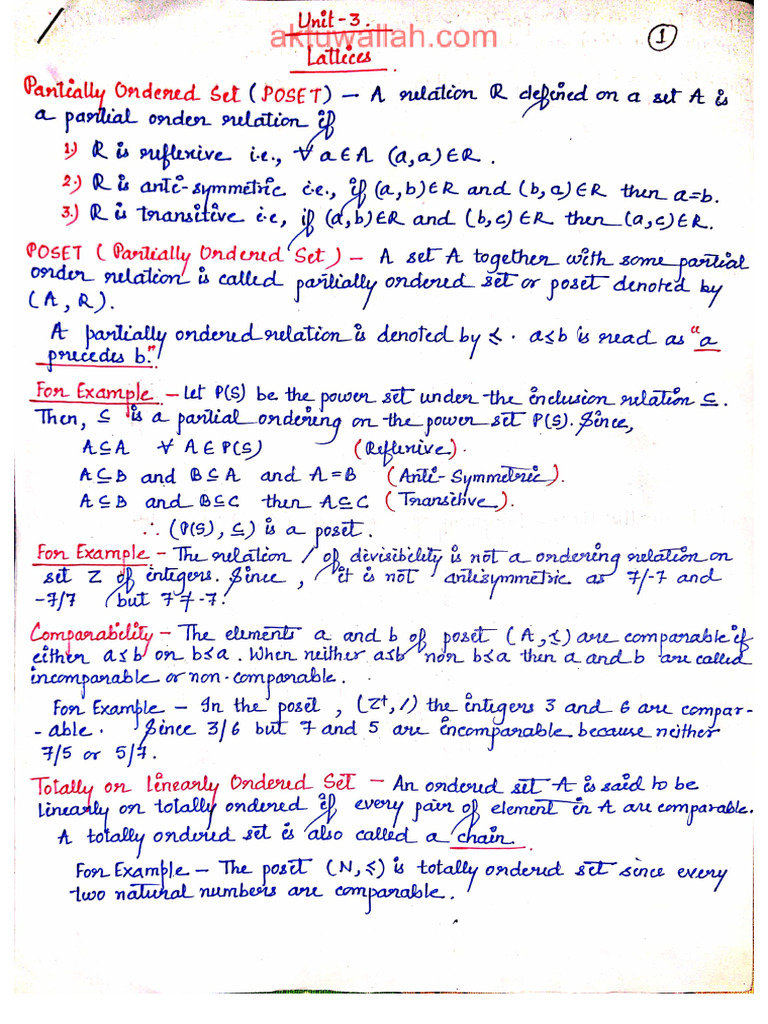 Unit-3.
aktuwallah.com
1
Lattices
Partially Ordered Set (POSET) - A relation R defined on a set A is
a partial order relation if
1.) R is reflexive i.e., ∀ a∈A (a,a)∈R.
2.) R is anti-symmetric i.e., if (a,b)∈R and (b,a)∈R then a=b.
3.) R is transitive i.e, if (a,b)∈R and (b,c)∈R then (a,c)∈R.
POSET (Partially Ordered Set) - A set A together with some partial
order relation is called partially ordered set or poset denoted by
(A, R).
A partially ordered relation is denoted by ≤. a≤b is read as "a
precedes b."
For Example - Let P(S) be the power set under the inclusion relation ⊆.
Then, ⊆ is a partial ordering on the power set P(S). Since,
A⊆A ∀ A∈P(S) (Reflexive).
A⊆B and B⊆A and A=B (Anti-Symmetric).
A⊆B and B⊆C then A⊆C (Transitive).
∴ (P(S), ⊆) is a poset.
For Example - The relation / of divisibility is not a ordering relation on
set Z of integers. Since, it is not antisymmetric as 7/-7 and
-7/7 but 7≠-7.
Comparability - The elements a and b of poset (A,≤) are comparable if
either a≤b or b≤a. When neither a≤b nor b≤a then a and b are called
incomparable or non-comparable.
For Example - In the poset, (Z⁺, /) the integers 3 and 6 are compar-
-able. Since 3/6 but 7 and 5 are incomparable because neither
7/5 or 5/7.
Totally or Linearly Ordered Set - An ordered set A is said to be
linearly or totally ordered if every pair of element in A are comparable.
A totally ordered set is also called a chain.
For Example - The poset (N,≤) is totally ordered set since every
two natural numbers are comparable.